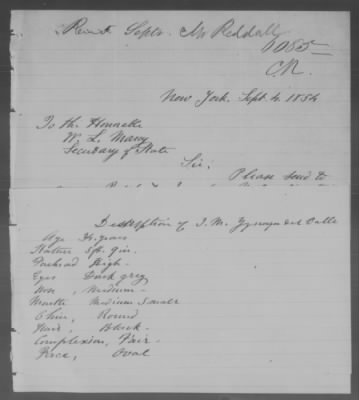 Recd. Septr. Mr Reddall
1085
C.R.
New York. Sept 4. 1854
To the Honorable
W. L. Marcy
Secretary of State
Sir:
Please send to
Description of J. M. del Valle
Age 34 years
Stature 5 ft. 9 in.
Forehead High.
Eyes Dark grey
Nose, Medium.
Mouth Medium Small
Chin, Round
Hair, Black.
Complexion, Fair.
Face, Oval